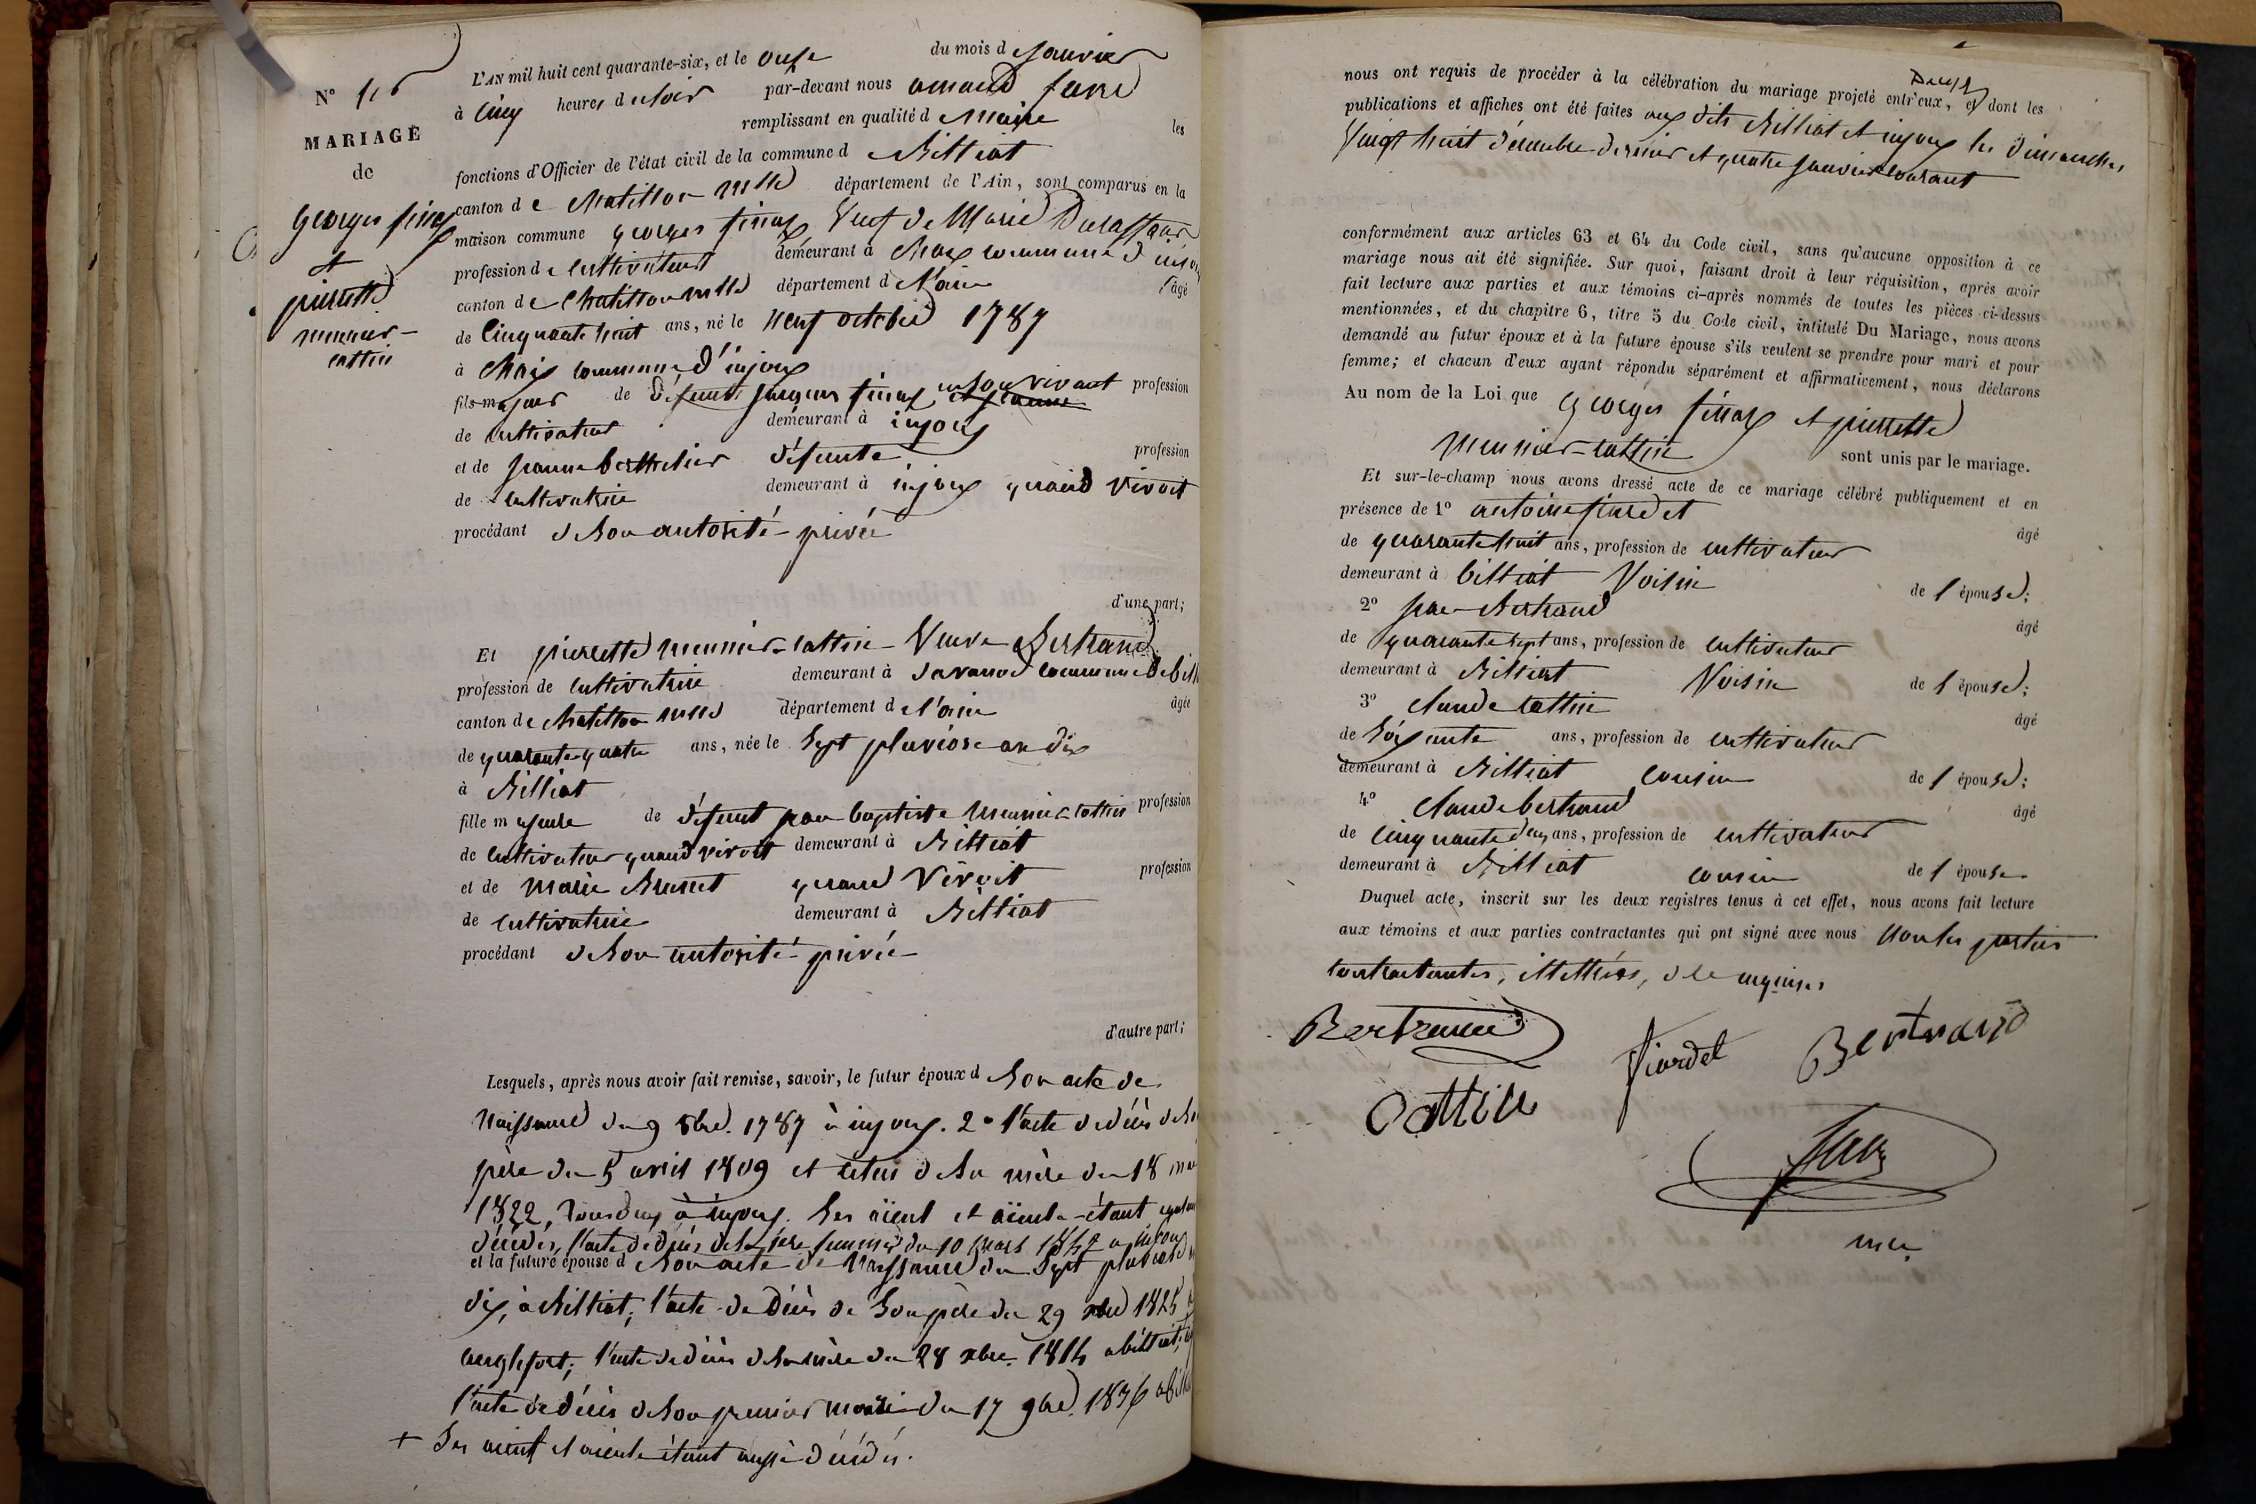 N°
MARIAGE
de
Georges finaz
et
pierrette
meunier-
cattin
L'AN mil huit cent quarante-six, et le onze du mois de Janvier
à cinq heures du Soir par-devant nous
remplissant en qualité de Maire les
fonctions d'Officier de l'état civil de la commune de Billiat
canton de Chatillon département de l'Ain, sont comparus en la
maison commune georges finaz Veuf de Marie
profession de Cultivateur demeurant à commune d'
canton de Chatillon département de l'ain âgé
de Cinquante huit ans, né le Neuf octobre 1787
à commune d'injoux
fils majeur de défunt finaz en son vivant profession
de cultivateur demeurant à injoux
et de jeanne berthelier défunte profession
de cultivatrice demeurant à injoux quand vivoit
procédant de Son autorité privée
d'une part;
Et pierrette meunier-cattin Veuve Bertrand
profession de cultivatrice demeurant à commune de
canton de Chatillon département de l'ain âgée
de quarante quatre ans, née le Sept pluviose an dix
à Billiat
fille majeure de défunt jean baptiste Meunier cattin profession
de Cultivateur quand vivoit demeurant à Billiat
et de Marie quand Vivoit profession
de cultivatrice demeurant à Billiat
procédant de Son autorité privée
d'autre part;
Lesquels, après nous avoir fait remise, savoir, le futur époux de Son acte de
Naissance du 9 8bre. 1787 à injoux. 2° l'acte de décès de
père du 5 avril 1809 et celui de Sa mère du 18
1822, tous deux à injoux. Ses aïeul et aïeule étant
décédés, l'acte de décès de Sa femme du 10 Mars
et la future épouse de Son acte de Naissance du Sept pluviose
dix, à Billiat; l'acte de Décès de Son père du 29 1825
l'acte de décès de Sa mère du 28 xbre. 1814 a billiat;
l'acte de décès de Son premier mari du 17 9bre. 1836
+ Ses aieul et aieule étant aussi décédés.
nous ont requis de procéder à la célébration du mariage projeté entr'eux, et dont les
Deux
publications et affiches ont été faites aux dits Billiat et injoux les Dimanches
Vingt huit décembre dernier et quatre janvier courant
conformément aux articles 63 et 64 du Code civil, sans qu'aucune opposition à ce
mariage nous ait été signifiée. Sur quoi, faisant droit à leur réquisition, après avoir
fait lecture aux parties et aux témoins ci-après nommés de toutes les pièces ci-dessus
mentionnées, et du chapitre 6, titre 5 du Code civil, intitulé Du Mariage, nous avons
demandé au futur époux et à la future épouse s'ils veulent se prendre pour mari et pour
femme; et chacun d'eux ayant répondu séparément et affirmativement, nous déclarons
Au nom de la Loi que Georges finaz et pierrette
meunier-cattin sont unis par le mariage.
Et sur-le-champ nous avons dressé acte de ce mariage célébré publiquement et en
présence de 1° antoine fiardet âgé
de quarante huit ans, profession de cultivateur
demeurant à billiat Voisin de l'épouse;
2° jean Bertrand âgé
de quarante sept ans, profession de cultivateur
demeurant à Billiat Voisin de l'épouse;
3° Claude cattin âgé
de Soixante ans, profession de cultivateur
demeurant à Billiat cousin de l'épouse;
4° Claude bertrand âgé
de Cinquante deux ans, profession de cultivateur
demeurant à Billiat cousin de l'épouse
Duquel acte, inscrit sur les deux registres tenus à cet effet, nous avons fait lecture
aux témoins et aux parties contractantes qui ont signé avec nous non les parties
contractantes, illettrées, de ce enquises
Bertrand
fiardet
Bertrand
Cattin